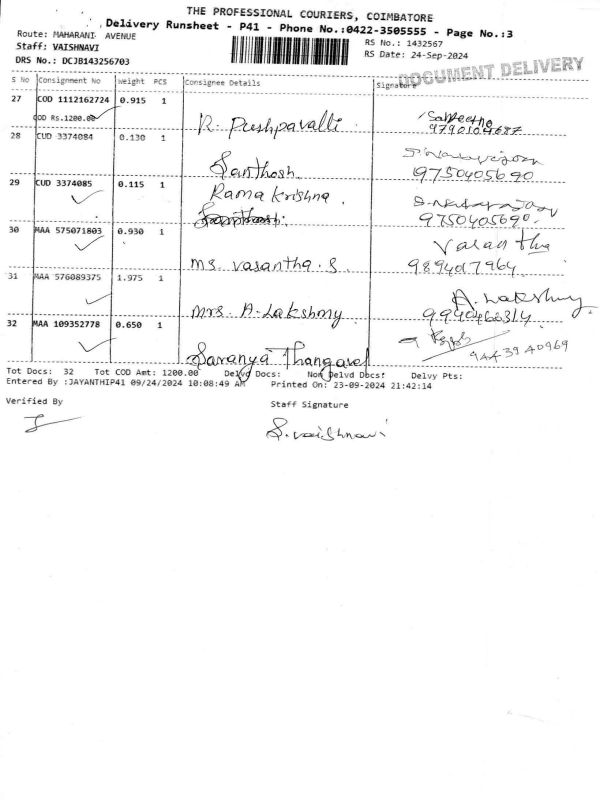 THE PROFESSIONAL COURIERS, COIMBATORE
Delivery Runsheet - P41 - Phone No.:0422-3505555 - Page No.:3
Route: MAHARANI AVENUE
RS No.: 1432567
Staff: VAISHNAVI
RS Date: 24-Sep-2024
DRS No.: DCJB143256703
DOCUMENT DELIVERY
S No Consignment No Weight PCS Consignee Details Signature
27 COD 1112162724 0.915 1
COD Rs.1200.00 R. Pushpavalli
28 CUD 3374084 0.130 1
Santhosh 9750405690
29 CUD 3374085 0.115 1 Rama krishna.
9750405690
30 MAA 575071803 0.930 1 Vasantha
ms. vasantha. S 9894017964
31 MAA 576089375 1.975 1 A. Lakshmy
Mrs. A. Lakshmy
32 MAA 109352778 0.650 1
Saranya Thangavel 9443940969
Tot Docs: 32 Tot COD Amt: 1200.00 Delvd Docs: Non Delvd Docs: Delvy Pts:
Entered By :JAYANTHIP41 09/24/2024 10:08:49 AM Printed On: 23-09-2024 21:42:14
Verified By Staff Signature
S. vaishnavi